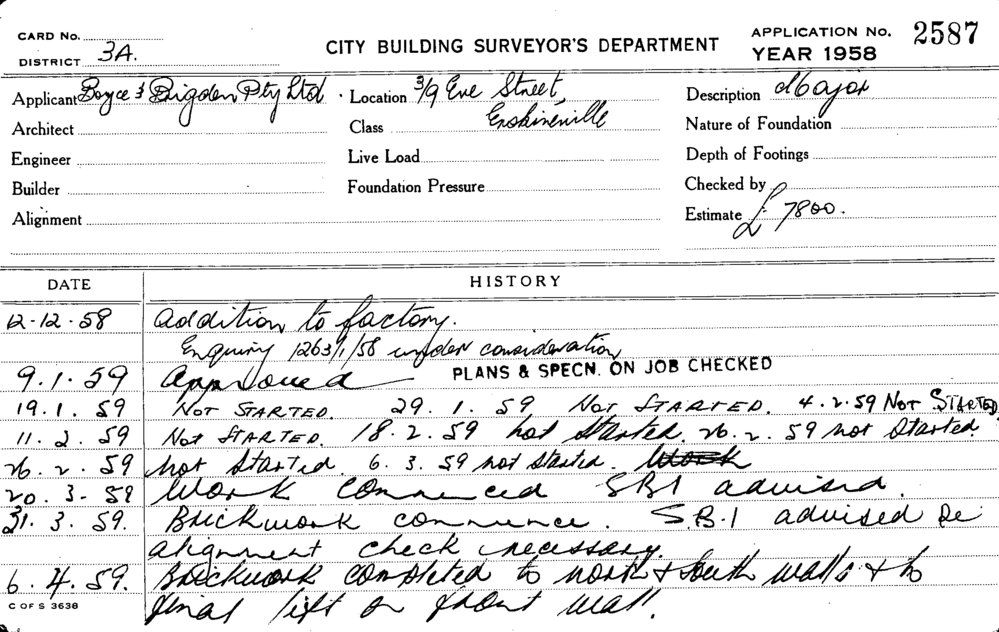 CARD No.
DISTRICT 3A.
CITY BUILDING SURVEYOR'S DEPARTMENT
APPLICATION No. 2587
YEAR 1958
Applicant Boyce & Brigden Pty Ltd. Location 3/9 Eve Street, Description Major
Architect Class Erskineville Nature of Foundation
Engineer Live Load Depth of Footings
Builder Foundation Pressure Checked by
Alignment Estimate £ 7800.
DATE HISTORY
12.12.58 Addition to factory.
Enquiry 1263/1/58 under consideration
9.1.59 Approved PLANS & SPECN. ON JOB CHECKED
19.1.59 NOT STARTED. 29.1.59 NOT STARTED. 4.2.59 NOT STARTED.
11.2.59 NOT STARTED. 18.2.59 not started. 26.2.59 not started.
26.2.59 not started. 6.3.59 not started. Work
20.3.59 Work commenced SBI advised.
31.3.59. Brickwork commence. S.B.I advised Re
alignment check necessary.
6.4.59. Brickwork completed to north & South walls & to
final lift on front wall.
C OF S 3638